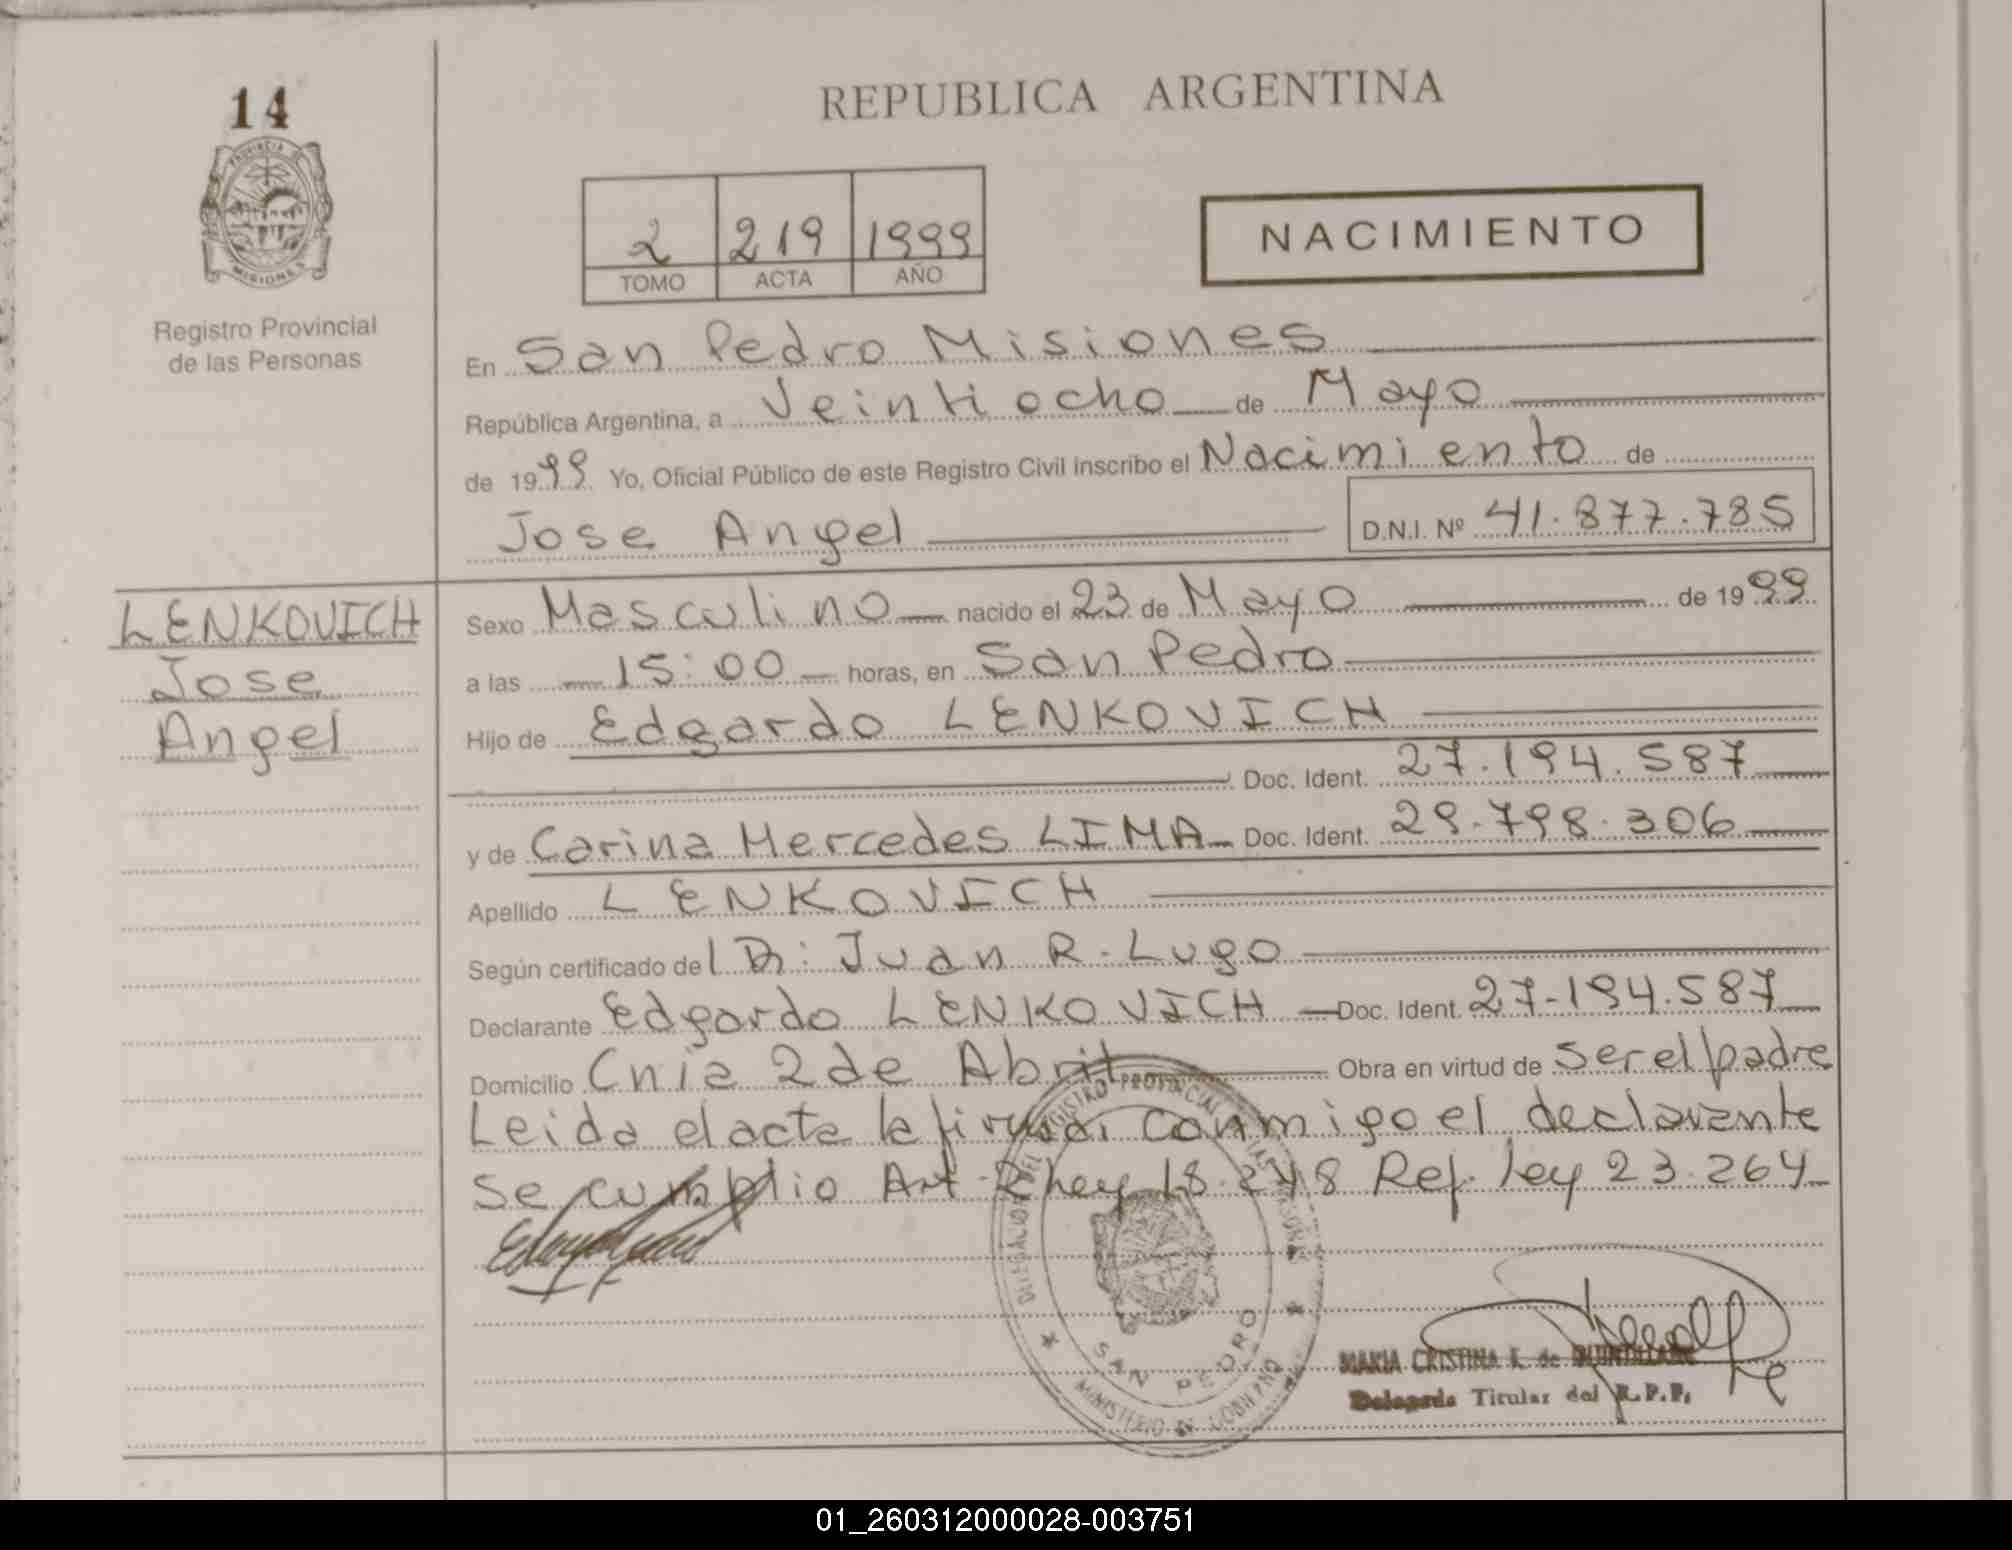 14
REPUBLICA ARGENTINA
PROVINCIA D
MISIONES
Registro Provincial
de las Personas
2 219 1999
TOMO ACTA AÑO
NACIMIENTO
En San Pedro Misiones
República Argentina, a Veintiocho de Mayo
de 1999 Yo, Oficial Público de este Registro Civil inscribo el Nacimiento de
Jose Angel D.N.I. Nº 41.877.785
LENKOVICH
Jose
Angel
Sexo Masculino nacido el 23 de Mayo de 1999
a las 15:00 horas, en San Pedro
Hijo de Edgardo LENKOVICH
Doc. Ident. 27.194.587
y de Carina Mercedes LIMA Doc. Ident. 29.798.306
Apellido LENKOVICH
Según certificado del Dr: Juan R. Lugo
Declarante Edgardo LENKOVICH Doc. Ident. 27.194.587
Domicilio Cnia 2 de Abril Obra en virtud de ser el padre
Leida el acta la firma conmigo el declarante
Se cumplio Art. 2 Ley 18.248 Ref. Ley 23.264
DELEGACION DEL REGISTRO PROVINCIAL DE LAS PERSONAS
SAN PEDRO
MINISTERIO DE GOBIERNO
MARIA CRISTINA K. de
Delegada Titular del R.P.P.
01_260312000028-003751